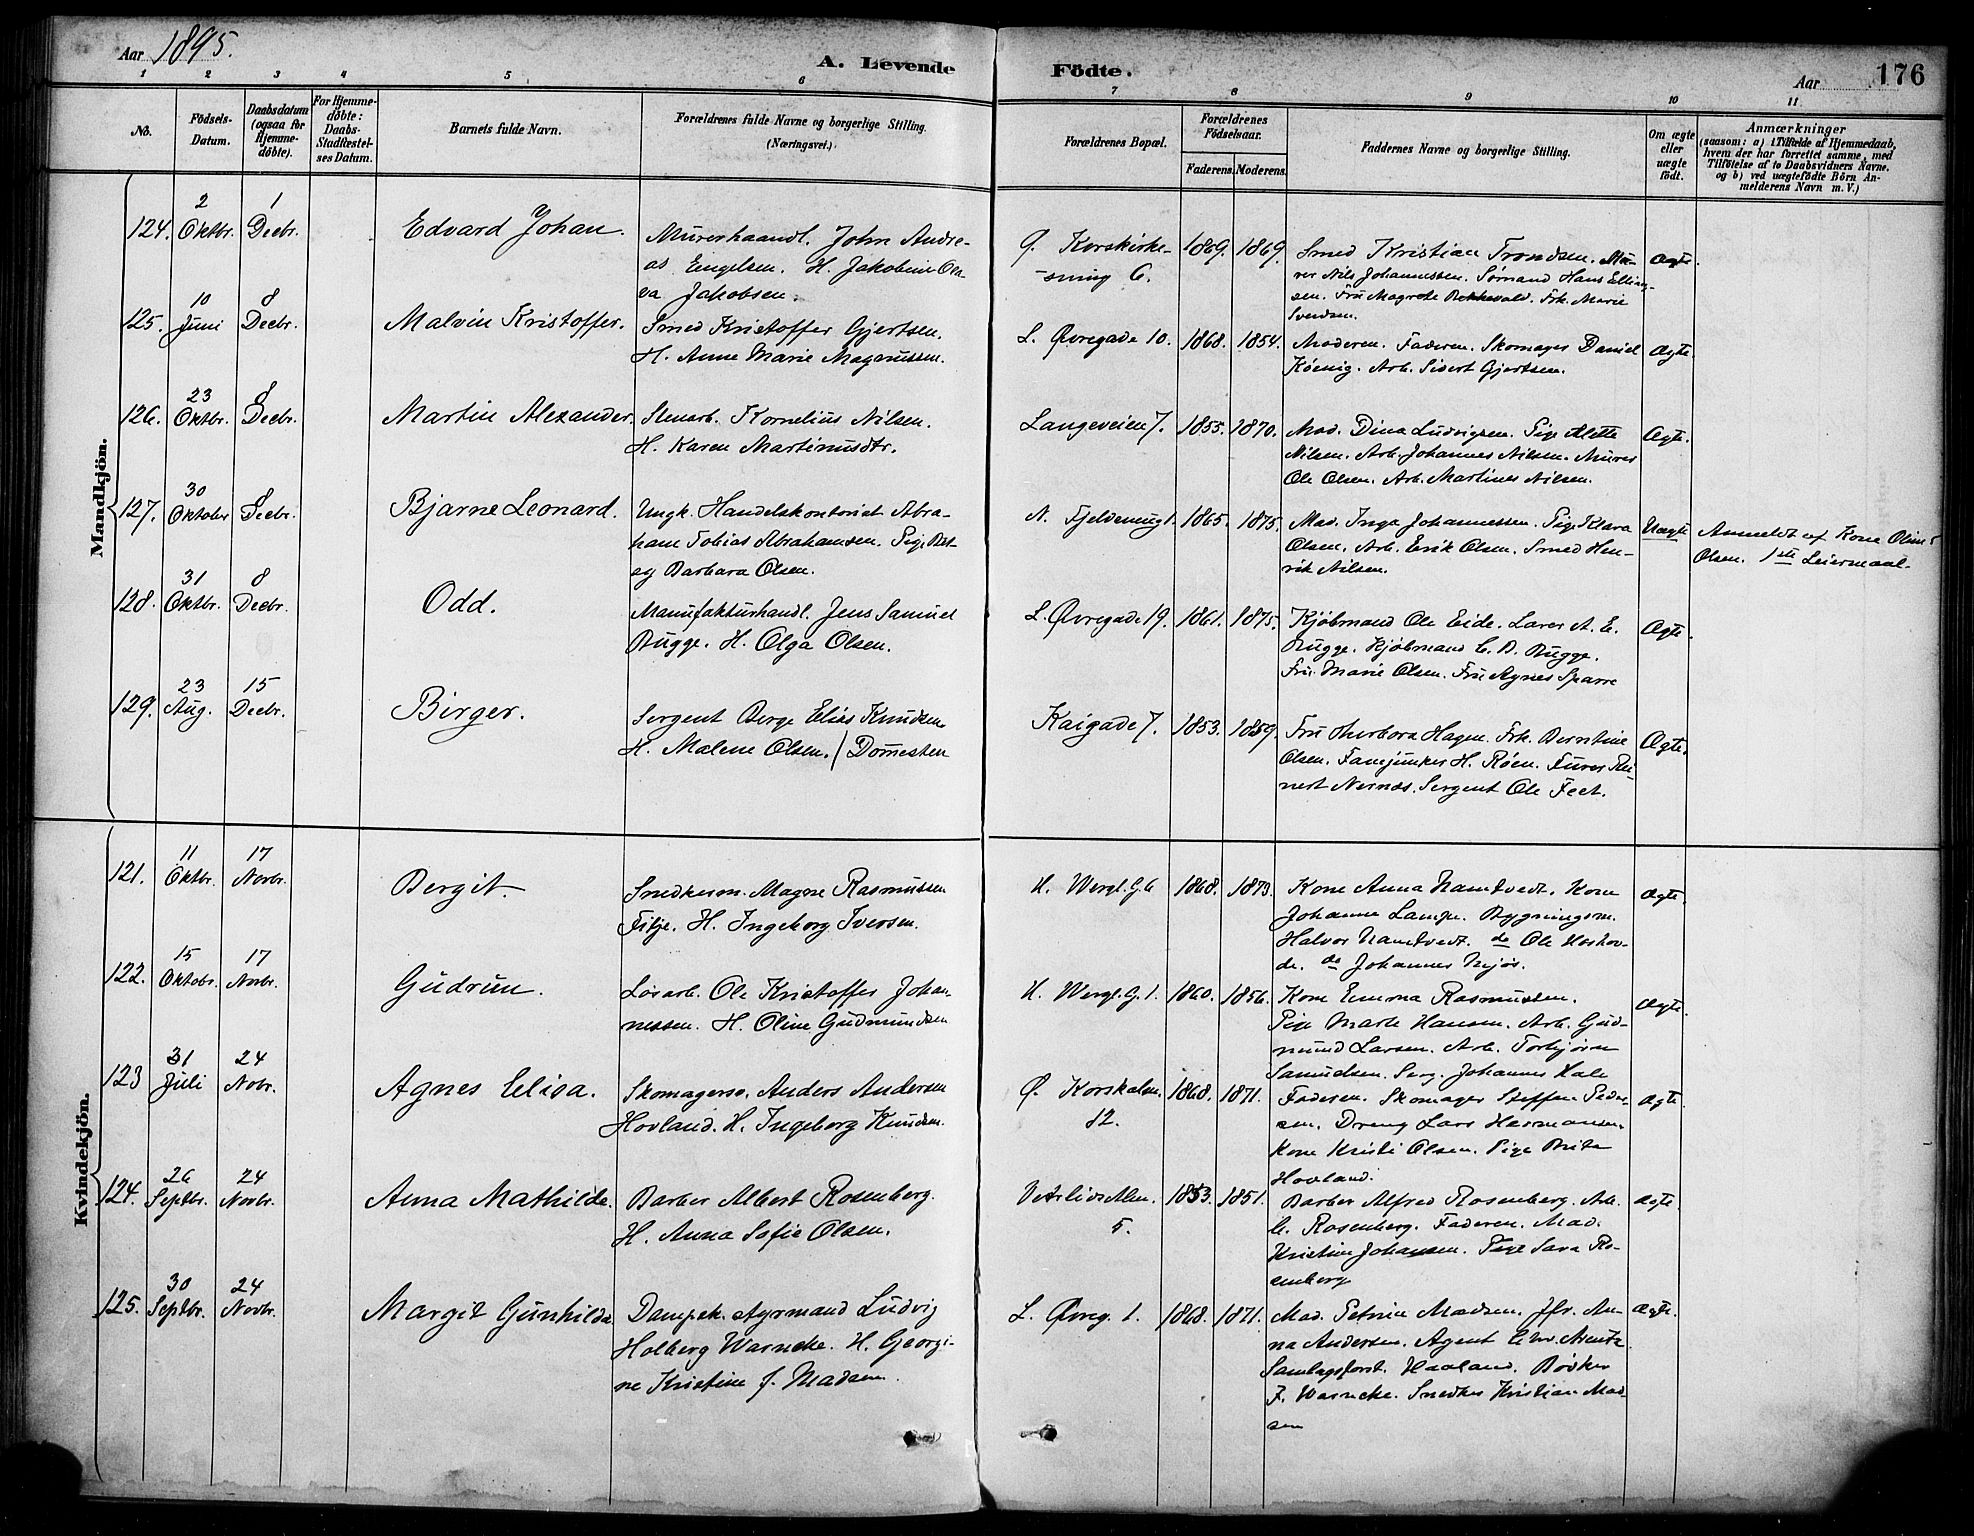 Aar 1895.
A. Levende
Födte.
Aar
176
1 2 3 4 5 6 7 8 9 10 11
No.
Födsels-
Datum.
Daabsdatum
(ogsaa for
Hjemme-
döbte).
For Hjemme-
döbte:
Daabs-
Stadfæstel-
ses Datum.
Barnets fulde Navn.
Forældrenes fulde Navne og borgerlige Stilling.
(Næringsvei.)
Forældrenes Bopæl.
Forældrenes
Födselsaar.
Faderens. Moderens.
Faddernes Navne og borgerlige Stilling.
Om ægte
eller
uægte
födt.
Anmærkninger
(saasom: a) i Tilfælde af Hjemmedaab,
hvem der har forrettet samme, med
Tilföielse af to Daabsvidners Navne,
og b) ved uægtefödte Börn An-
melderens Navn m. V.)
Mandkjön.
124. 2 Oktbr. 1 Decbr. Edvard Johan.
Murerhaandl. John Andre-
as Engelsen. H. Jakobine Ol-
va Jakobsen.
Ø. Korskirke-
smug 6.
1869. 1869.
Smed Kristian Trondsen. Mu-
rer Nils Johannessen. Sømand Hans Elling-
sen. Fru Magrete Rekkevold. Frk. Marie
Svendsen.
Ægte.
125. 10 Juni 8 Decbr. Malvin Kristoffer.
Smed Kristoffer Gjertsen.
H. Anne Marie Magnussen.
L. Øvregade 10. 1868. 1854.
Moderen. Faderen. Skomager Daniel
Köenig. Arb. Sivert Gjertsen.
Ægte.
126. 23 Oktbr. 8 Decbr. Martin Alexander.
Stenarb. Kornelius Nilsen.
H. Karen Martinusdtr.
Langeveien 7. 1855. 1870.
Mad. Dina Ludvigsen. Pige Mette
Nilsen. Arb. Johannes Nilsen. Murer
Ole Olsen. Arb. Martines Nilsen.
Ægte.
127. 30 Oktober 8 Decbr. Bjarne Leonard.
Ungk. Handelskontorist Abra-
ham Tobias Abrahamsen. Pige Bet-
sy Barbara Olsen.
N. Fjeldsmug 1. 1865. 1875.
Mad. Inga Johannessen. Pige Klara
Olsen. Arb. Erik Olsen. Smed Hen-
rik Nilsen.
Uægte
Anmeldt af Kone Oline
Olsen. 1ste Leiermaal.
128. 31 Oktbr. 8 Decbr. Odd.
Manufakturhandl. Jens Samuel
Bugge. H. Olga Olsen.
L. Øvregade 19. 1861. 1875.
Kjöbmand Ole Eide. Lærer A. E.
Bugge. Kjöbmand C. D. Bugge.
Fru Marie Olsen. Fru Agnes Sparre
Ægte.
129. 23 Aug. 15 Decbr. Birger.
Sergent Berge Elias Knudsen
H. Malene Olsen. / Domesten
Kaigade 7. 1853. 1859.
Fru Thorbora Hagen. Frk. Berntine
Olsen. Fanejunker H. Røen. Furer Rei-
nert Nernæs. Sergent Ole Feet.
Ægte.
Kvindekjön.
121. 11 Oktbr. 17 Novbr. Bergit.
Snedkersv. Magne Rasmussen
Filje. H. Ingeborg Iversen.
H. Wergl. G. 6 1868. 1873.
Kone Anna Namtvedt. Kone
Johanna Lampe. Bygningsm.
Halvor Namtvedt. do Ole Horhov-
de. do Johannes Nejös.
Ægte.
122. 15 Oktobr. 17 Novbr. Gudrun.
Løsarb. Ole Kristoffer Johan-
nessen. H. Oline Gudmundsen
H. Wergl. G. 1. 1860. 1856.
Kone Emma Rasmussen.
Pige Marte Hansen. Arb. Gud-
mund Larsen. Arb. Torbjörn
Samuelsen. Serg. Johannes Hale
Ægte.
123 31 Juli 24 Nobr. Agnes Elisa.
Skomagersv. Anders Andersen
Hovland. H. Ingeborg Knudsen.
Ø. Korskalm.
12.
1868. 1871.
Faderen. Skomager Steffen Peder-
sen. Dreng Lars Hermansen.
Kone Kristi Olsen. Pige Brita
Hovland.
Ægte
124. 26 Septbr. 24 Novbr. Anna Mathilde.
Barber Albert Rosenberg.
H. Anna Sofie Olsen.
Vetrlidsalm.
5.
1853. 1851.
Barber Alfred Rosenberg. Arb.
C. Rosenberg. Faderen. Mad.
Kristine Johansen. Pige Sara Ro-
senberg
Ægte.
125. 30 Septbr. 24 Novbr. Margit Gunhilda
Dampsk. styrmand Ludvig
Holberg Warncke. H. Georgi-
ne Kristine f. Madsen.
L. Øvreg. 1. 1868. 1871.
Mad. Petrine Madsen. Jfr. An-
na Andersen. Agent Chr. Arentz.
Samlagsforst. Haaland. Bödker
F. Warncke. Snedker Kristian Mad-
sen
Ægte.